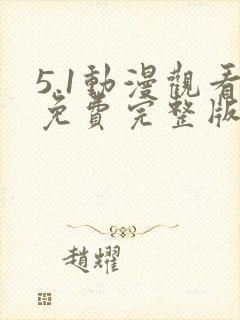 5.1動漫觀看
免費完整版
趙耀